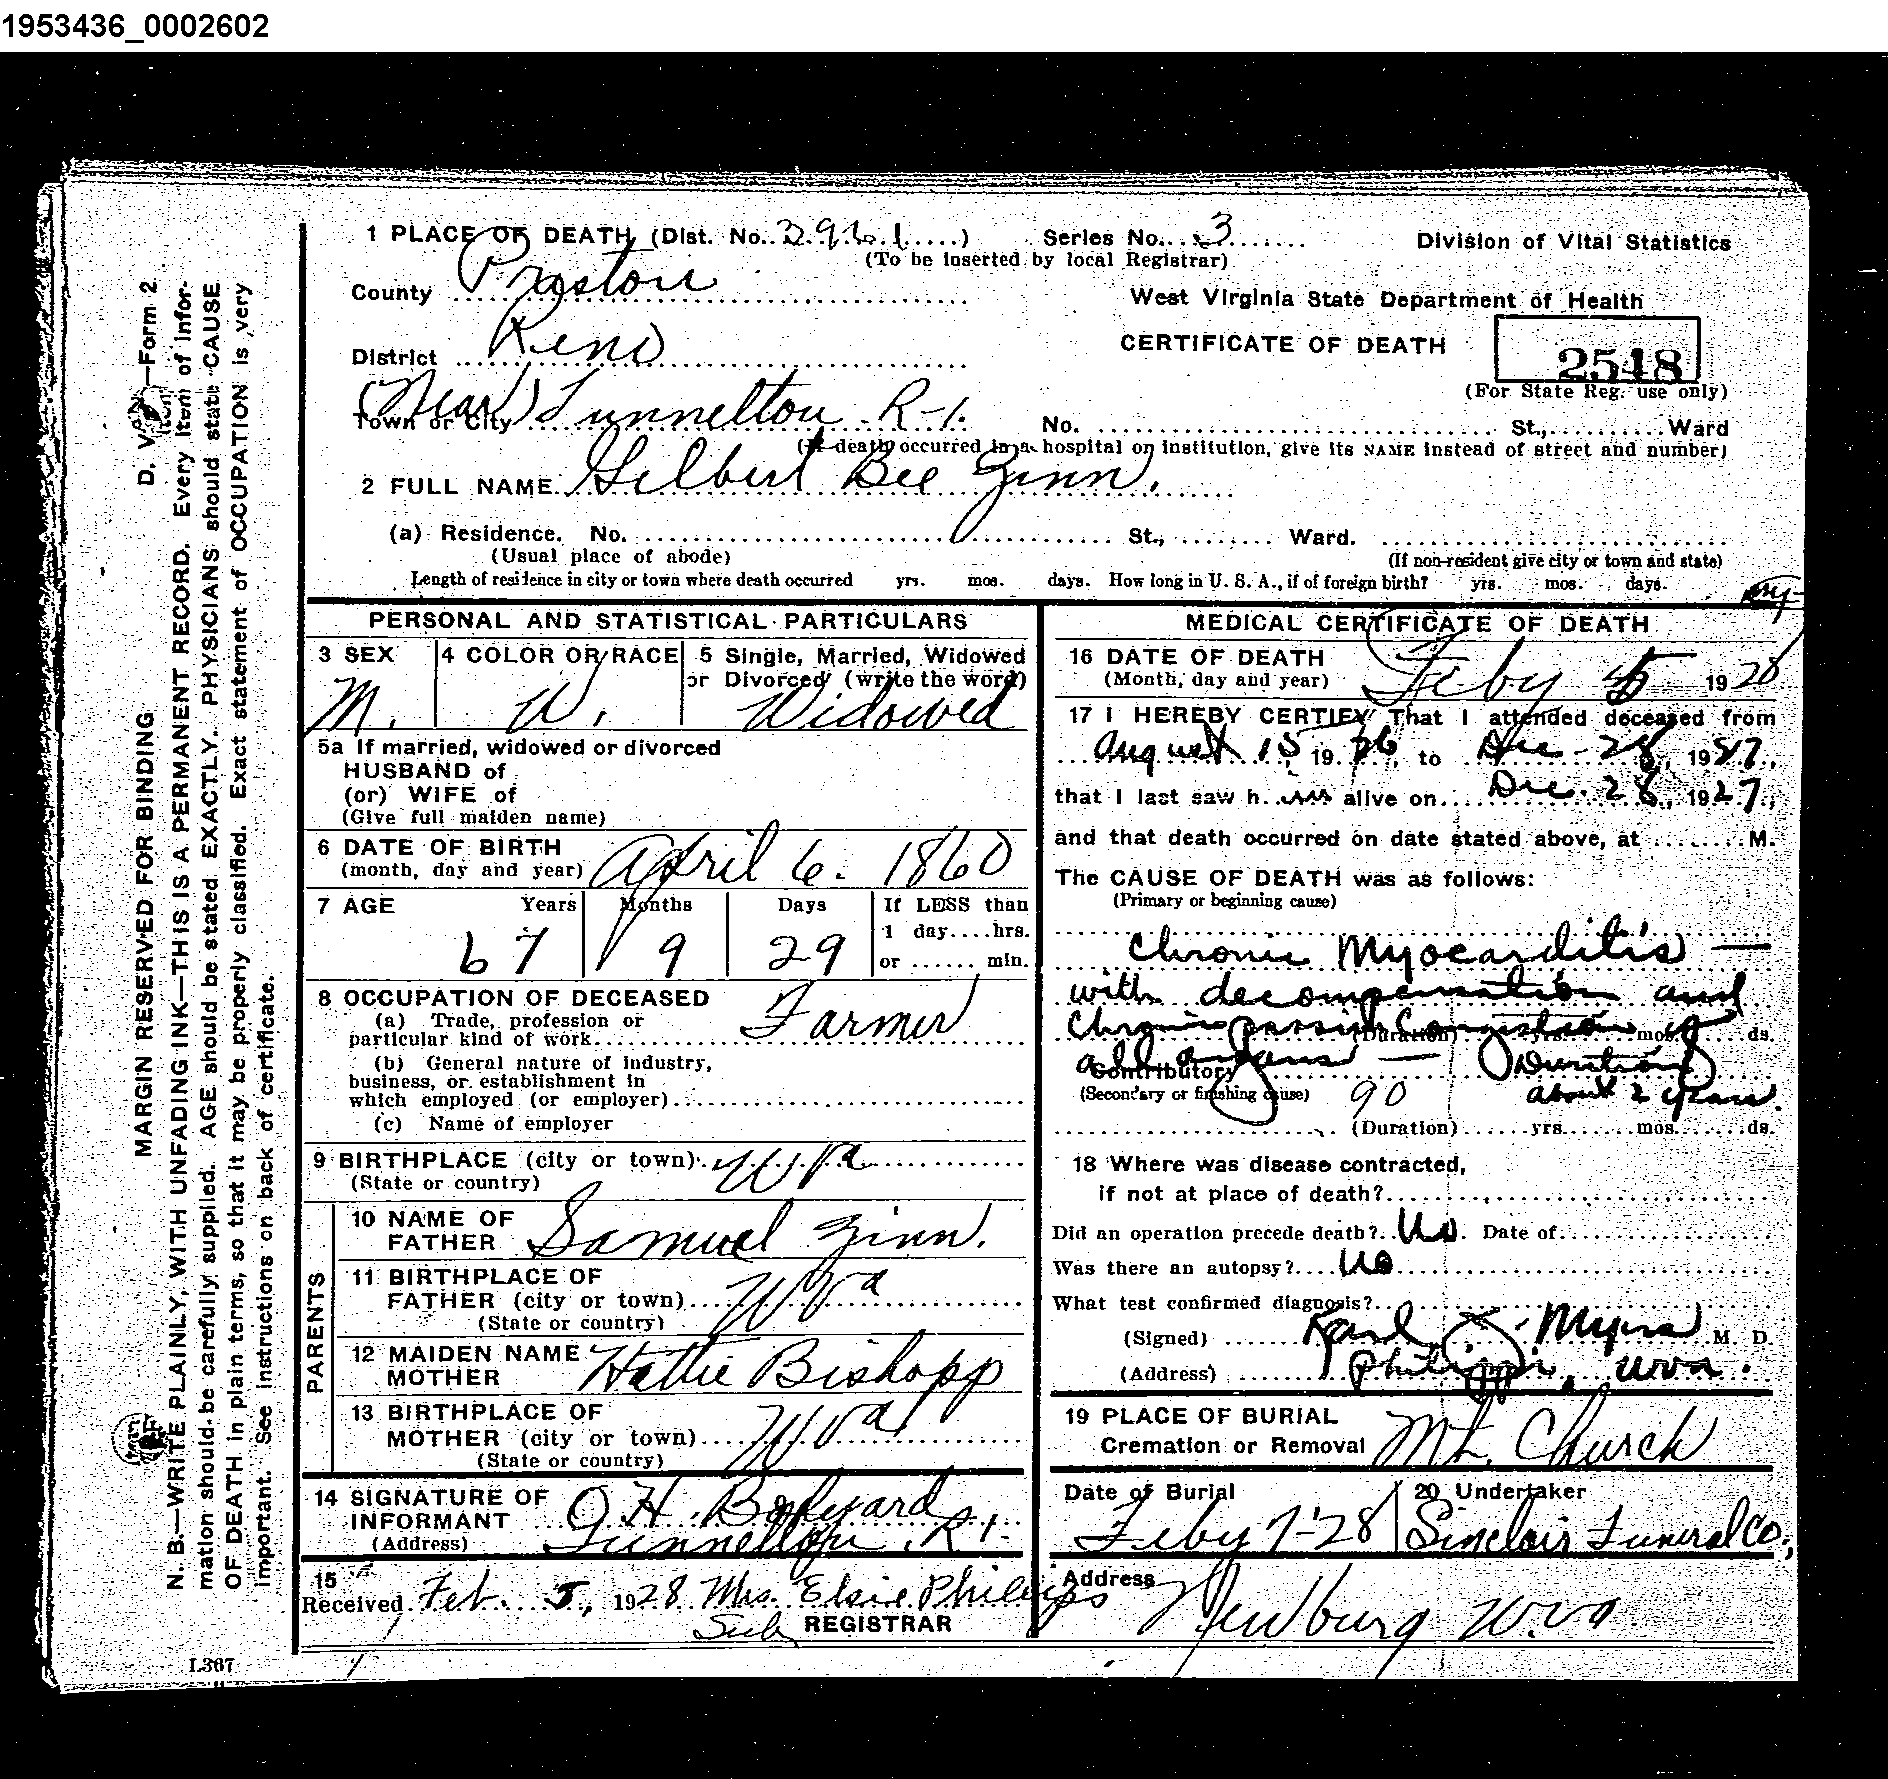 1953436_0002602
1 PLACE OF DEATH (Dist. No. 3961) Series No. 3 Division of Vital Statistics
(To be inserted by local Registrar)
County Preston West Virginia State Department of Health
District Reno CERTIFICATE OF DEATH 2548
(For State Reg. use only)
Town or City (Near) Tunnelton R-1. No. St., Ward
(If death occurred in a hospital or institution, give its NAME instead of street and number)
2 FULL NAME Gilbert Bee Zinn.
(a) Residence. No. St., Ward.
(Usual place of abode) (If non-resident give city or town and state)
Length of residence in city or town where death occurred yrs. mos. days. How long in U. S. A., if of foreign birth? yrs. mos. days.
PERSONAL AND STATISTICAL PARTICULARS
3 SEX M.
4 COLOR OR RACE W.
5 Single, Married, Widowed
or Divorced (write the word)
Widowed
5a If married, widowed or divorced
HUSBAND of
(or) WIFE of
(Give full maiden name)
6 DATE OF BIRTH
(month, day and year) April 6. 1860
7 AGE Years Months Days If LESS than
1 day....hrs.
67 9 29 or ...... min.
8 OCCUPATION OF DECEASED
(a) Trade, profession or
particular kind of work Farmer
(b) General nature of industry,
business, or establishment in
which employed (or employer)
(c) Name of employer
9 BIRTHPLACE (city or town) W Va
(State or country)
PARENTS
10 NAME OF
FATHER Samuel Zinn.
11 BIRTHPLACE OF
FATHER (city or town) W Va
(State or country)
12 MAIDEN NAME
MOTHER Hattie Bishopp
13 BIRTHPLACE OF
MOTHER (city or town) W Va
(State or country)
14 SIGNATURE OF
INFORMANT O H. Bolyard
(Address) Tunnelton, R 1-
15
Received Feb. 5, 1928 Mrs. Elsie Philipps
Sub REGISTRAR
MEDICAL CERTIFICATE OF DEATH
16 DATE OF DEATH
(Month, day and year) Feby 5 1928
17 I HEREBY CERTIFY That I attended deceased from
August 15, 1926, to Dec - 28, 1927,
that I last saw h im alive on Dec. 28, 1927,
and that death occurred on date stated above, at M.
The CAUSE OF DEATH was as follows:
(Primary or beginning cause)
Chronic Myocarditis —
with decompensation and
Chronic passive Congestion of
(Duration) yrs. mos. ds.
all organs — (Duration
Contributory
(Secondary or finishing cause) 90 about 2 years.
(Duration) yrs. mos. ds.
18 Where was disease contracted,
if not at place of death?
Did an operation precede death? No. Date of
Was there an autopsy? No
What test confirmed diagnosis?
(Signed) Karl J. Myers M. D.
(Address) Philippi, W Va.
19 PLACE OF BURIAL
Cremation or Removal Mt. Church
Date of Burial
Feby 7-'28
20 Undertaker
Sinclair Funeral Co.,
Address
Newburg W. Va.
MARGIN RESERVED FOR BINDING D. V. —Form 2
N. B.—WRITE PLAINLY, WITH UNFADING INK—THIS IS A PERMANENT RECORD. Every item of infor-
mation should be carefully supplied. AGE should be stated EXACTLY. PHYSICIANS should state CAUSE
OF DEATH in plain terms, so that it may be properly classified. Exact statement of OCCUPATION is very
important. See instructions on back of certificate.
L367